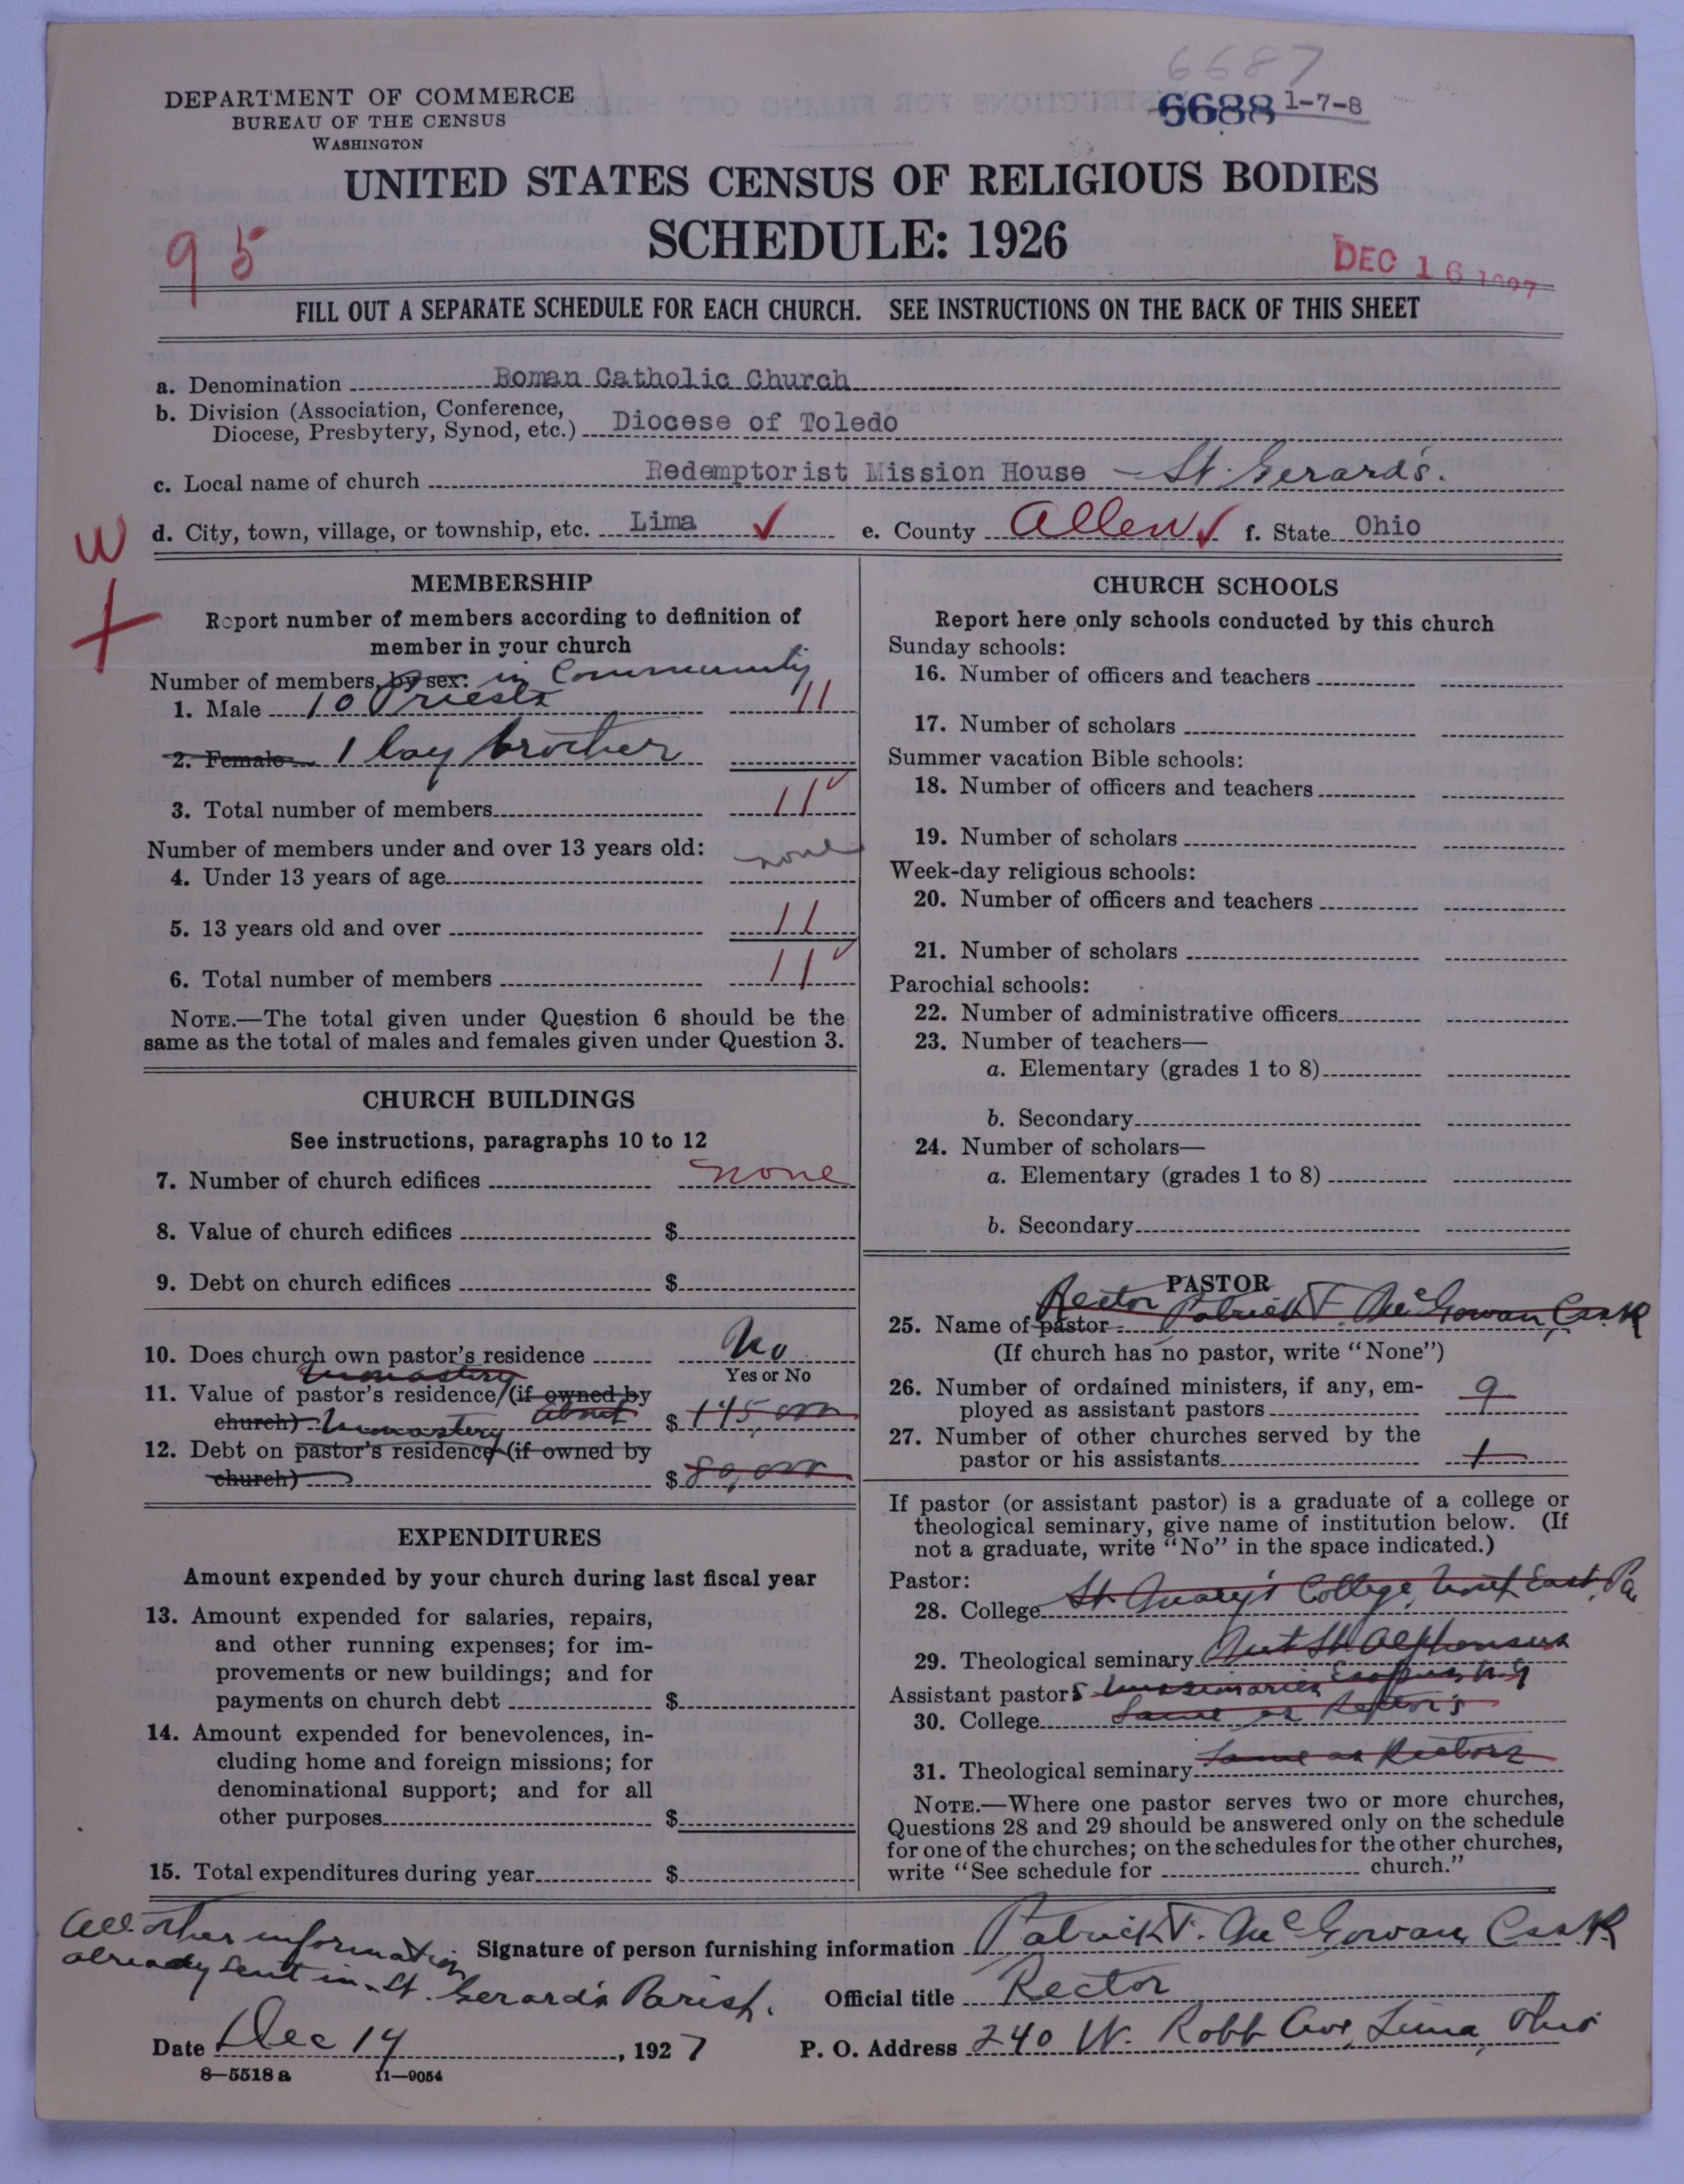 6687
DEPARTMENT OF COMMERCE
BUREAU OF THE CENSUS
WASHINGTON
6688 1-7-8
UNITED STATES CENSUS OF RELIGIOUS BODIES
SCHEDULE: 1926
95
DEC 16 1927
FILL OUT A SEPARATE SCHEDULE FOR EACH CHURCH. SEE INSTRUCTIONS ON THE BACK OF THIS SHEET
a. Denomination Roman Catholic Church
b. Division (Association, Conference,
Diocese, Presbytery, Synod, etc.) Diocese of Toledo
c. Local name of church Redemptorist Mission House - St. Gerard's.
W d. City, town, village, or township, etc. Lima ✓ e. County Allen ✓ f. State Ohio
MEMBERSHIP
Report number of members according to definition of
member in your church
Number of members, by sex: in Community
1. Male 10 Priests 11
2. Female 1 lay brother
3. Total number of members 11 ✓
Number of members under and over 13 years old:
4. Under 13 years of age none
5. 13 years old and over 11
6. Total number of members 11 ✓
NOTE.—The total given under Question 6 should be the
same as the total of males and females given under Question 3.
CHURCH BUILDINGS
See instructions, paragraphs 10 to 12
7. Number of church edifices none
8. Value of church edifices $
9. Debt on church edifices $
10. Does church own pastor's residence No
Yes or No
monastery
11. Value of pastor's residence (if owned by
church) about $ 145,000
monastery
12. Debt on pastor's residence (if owned by
church) $ 80,000
EXPENDITURES
Amount expended by your church during last fiscal year
13. Amount expended for salaries, repairs,
and other running expenses; for im-
provements or new buildings; and for
payments on church debt $
14. Amount expended for benevolences, in-
cluding home and foreign missions; for
denominational support; and for all
other purposes $
15. Total expenditures during year $
CHURCH SCHOOLS
Report here only schools conducted by this church
Sunday schools:
16. Number of officers and teachers
17. Number of scholars
Summer vacation Bible schools:
18. Number of officers and teachers
19. Number of scholars
Week-day religious schools:
20. Number of officers and teachers
21. Number of scholars
Parochial schools:
22. Number of administrative officers
23. Number of teachers—
a. Elementary (grades 1 to 8)
b. Secondary
24. Number of scholars—
a. Elementary (grades 1 to 8)
b. Secondary
PASTOR
25. Name of pastor Rector Patrick F. McGowan, CSSR
(If church has no pastor, write "None")
26. Number of ordained ministers, if any, em-
ployed as assistant pastors 9
27. Number of other churches served by the
pastor or his assistants 1
If pastor (or assistant pastor) is a graduate of a college or
theological seminary, give name of institution below. (If
not a graduate, write "No" in the space indicated.)
Pastor:
28. College St. Mary's College, North East, Pa
29. Theological seminary Mt St. Alphonsus
Esopus N.Y
Assistant pastors missionaries
30. College Same as Rector's
31. Theological seminary Same as Rectors
NOTE.—Where one pastor serves two or more churches,
Questions 28 and 29 should be answered only on the schedule
for one of the churches; on the schedules for the other churches,
write "See schedule for church."
All other information
already sent in - St. Gerard's Parish.
Signature of person furnishing information Patrick F. McGowan, CSSR
Official title Rector
Date Dec 14, 1927 P. O. Address 240 W. Robb Ave, Lima, Ohio
8—5518a 11—9054